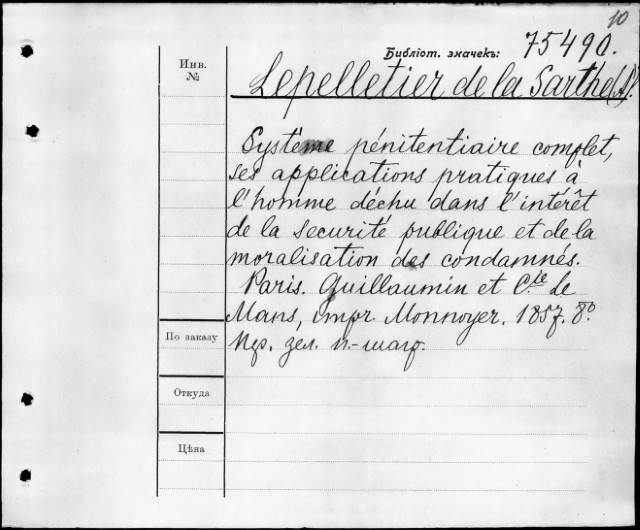 10
Библіот. значекъ: 75490.
Инв.
№
Lepelletier de la Sarthe (A).
Système pénitentiaire complet,
ses applications pratiques à
l'homme déchu dans l'intérêt
de la securité publique et de la
moralisation des condamnés.
Paris. Guillaumin et Cie. Le
Mans, impr. Monnoyer. 1857. 8o.
По заказу
зел.
Откуда
Цѣна